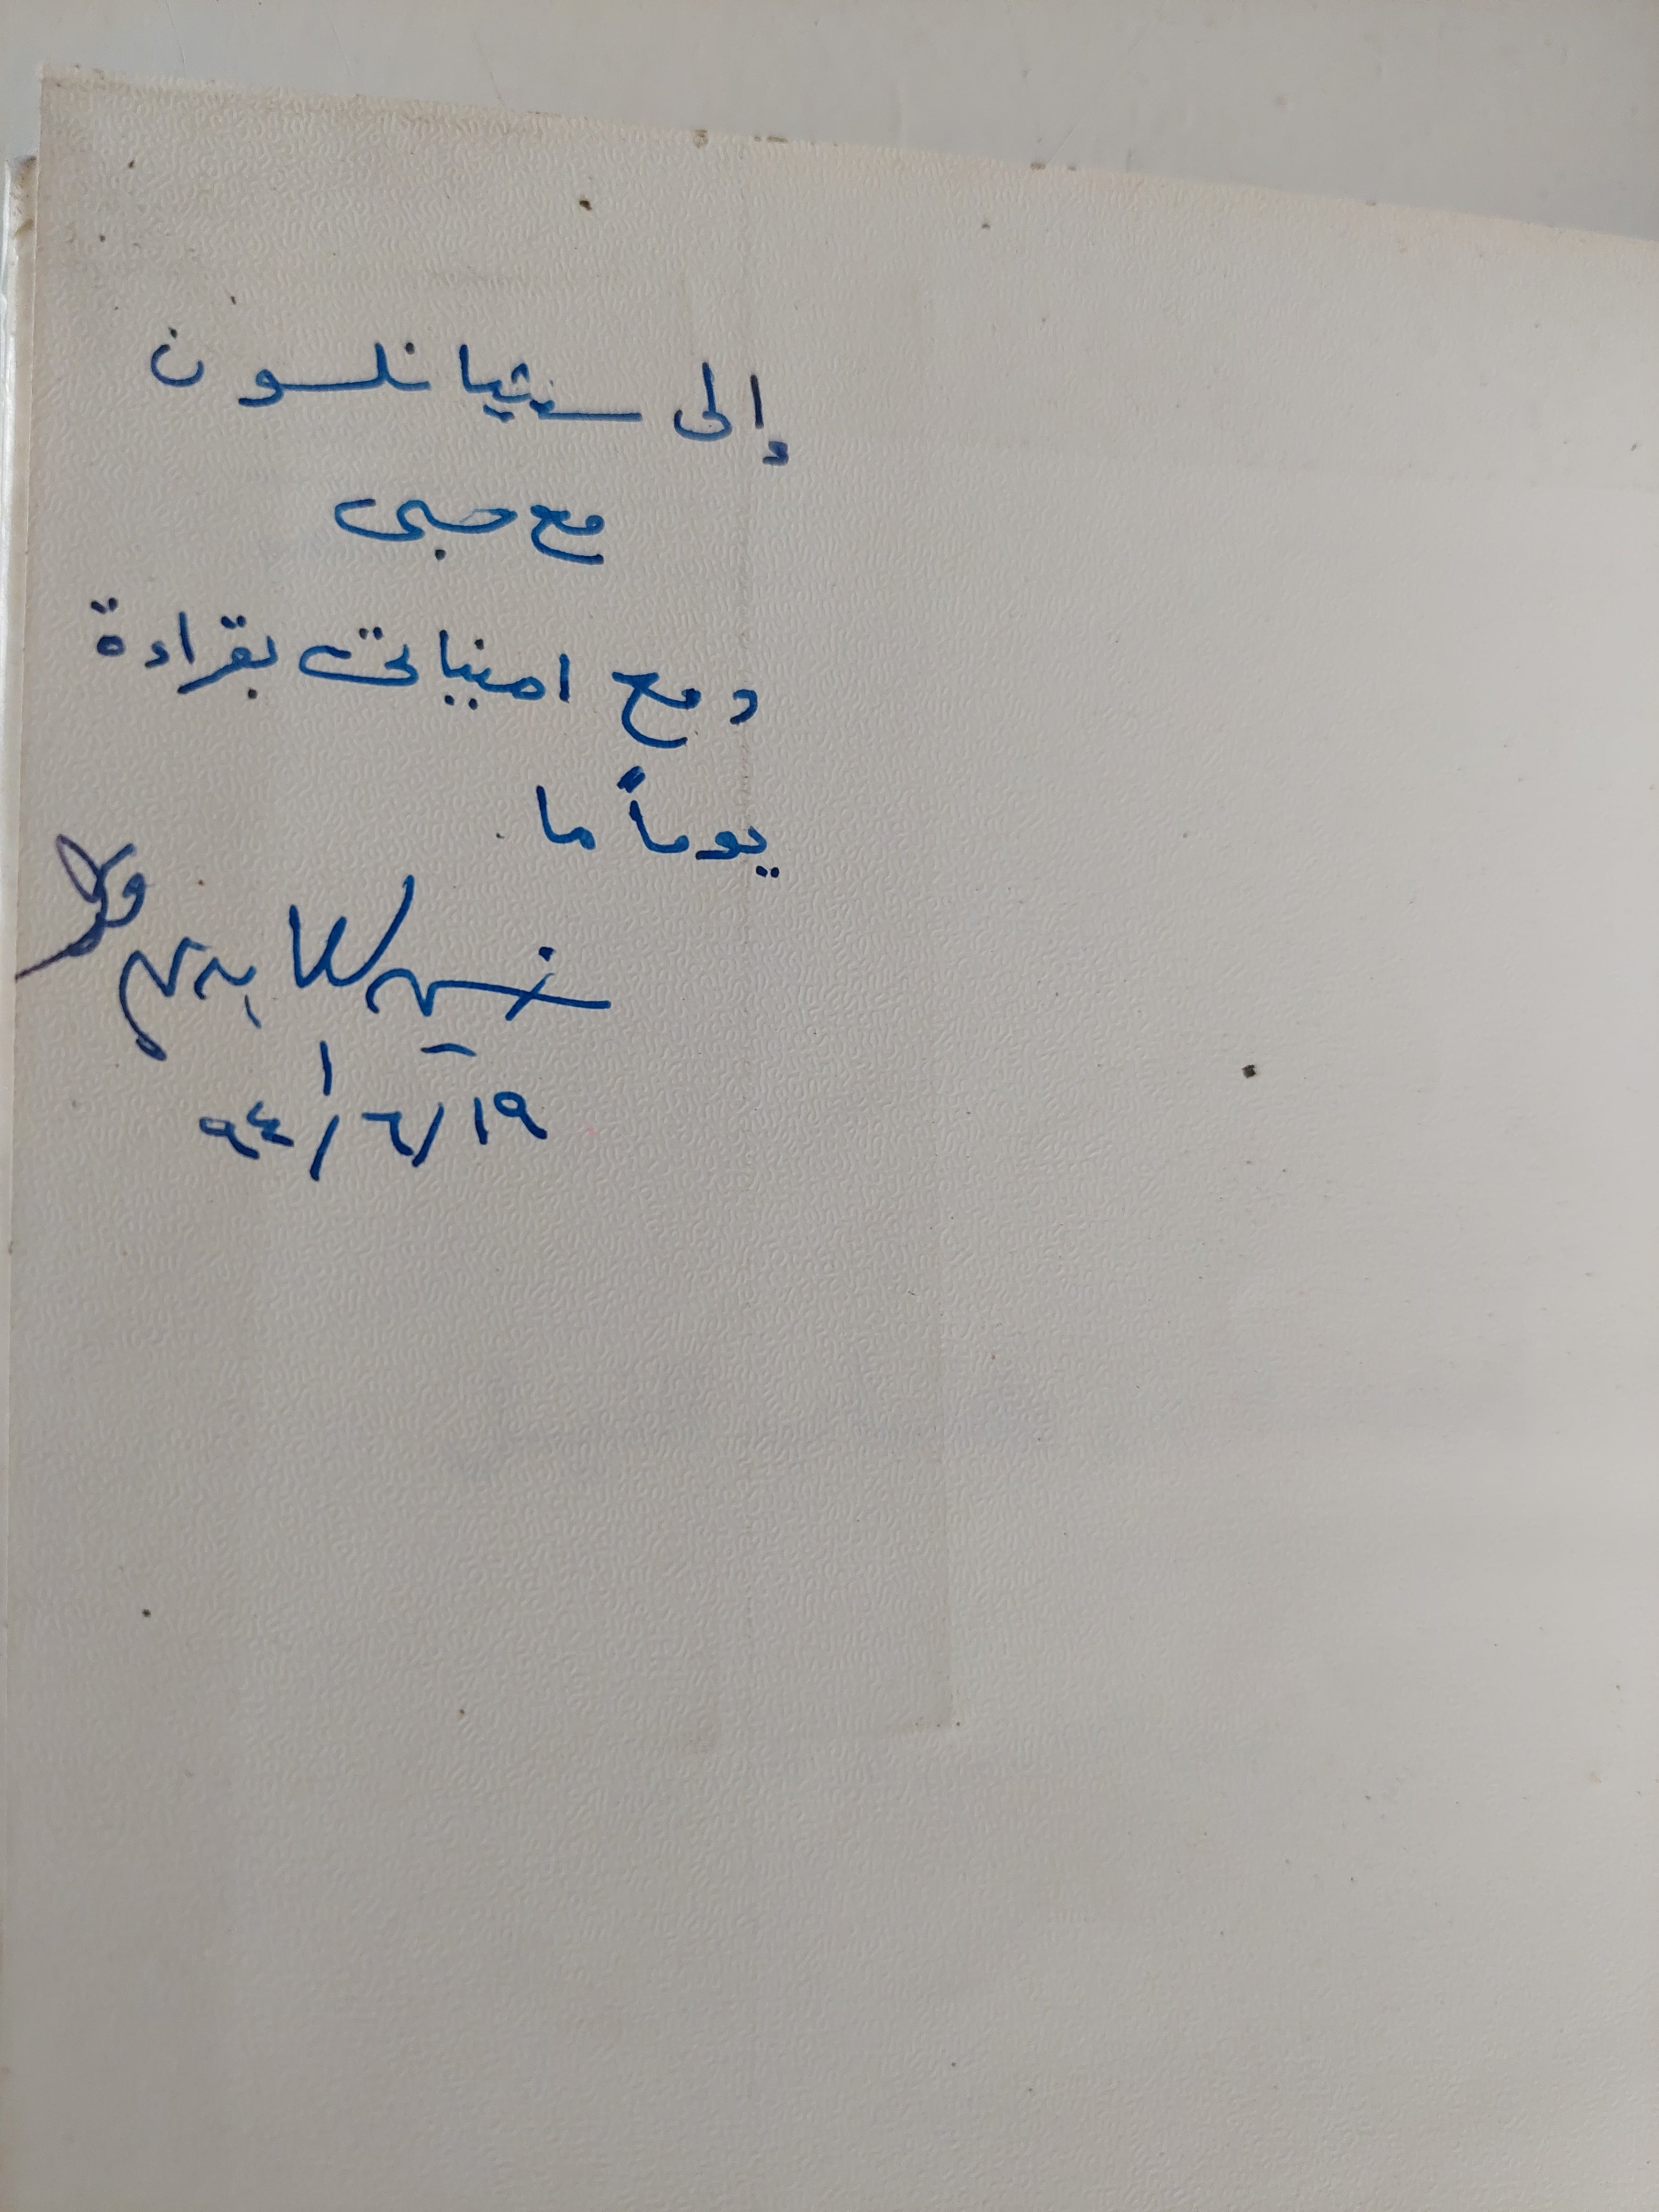 إلى سينتيا نلسون
مع حبى
ومع امنياتى بقراءة
يوماً ما
١٩/٦/٩٤